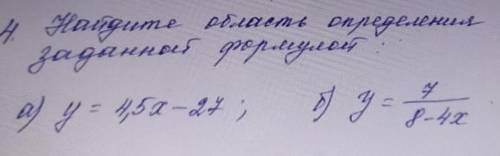 4. Найдите область определения
заданной формулой:
а) y = 4,5x-27; б) y = 7/(8-4x)